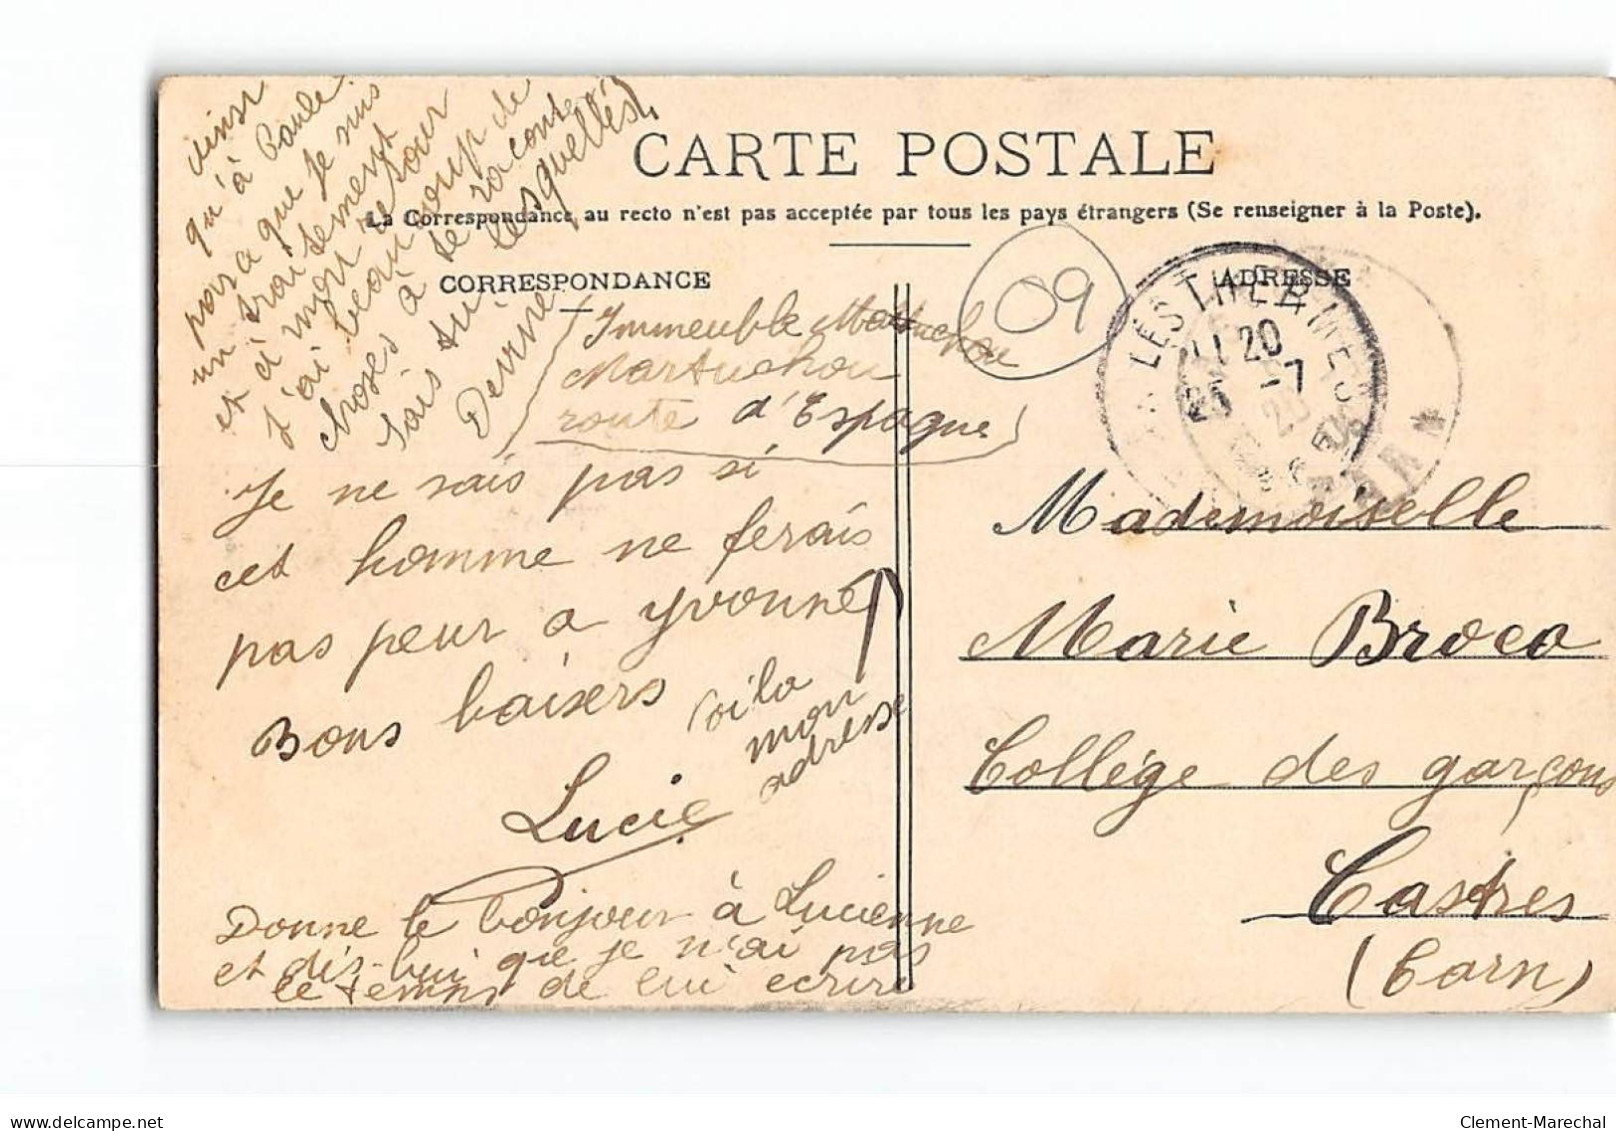 CARTE POSTALE
La Correspondance au recto n'est pas acceptée par tous les pays étrangers (Se renseigner à la Poste).
CORRESPONDANCE
ADRESSE
09
LES THERMES
11 20
25 -7
TARN
Je ne sais pas si
cet homme ne ferais
pas peur a Yvonne
Bons baisers
Lucie
Donne le bonjour à Lucienne
et dis-lui que je n'ai pas
le temps de lui ecrire
voila
mon
adresse
Immeuble
Martuchou
route d'Espagne
ainsi
qu'à Paule
parce que je suis
un
et à mon retour
j'ai beaucoup de
choses à te raconter
sais tu lesquelles
Devine
Mademoiselle
Marie Broca
Collège des garçons
Castres
(Tarn)
Clement-Marechal